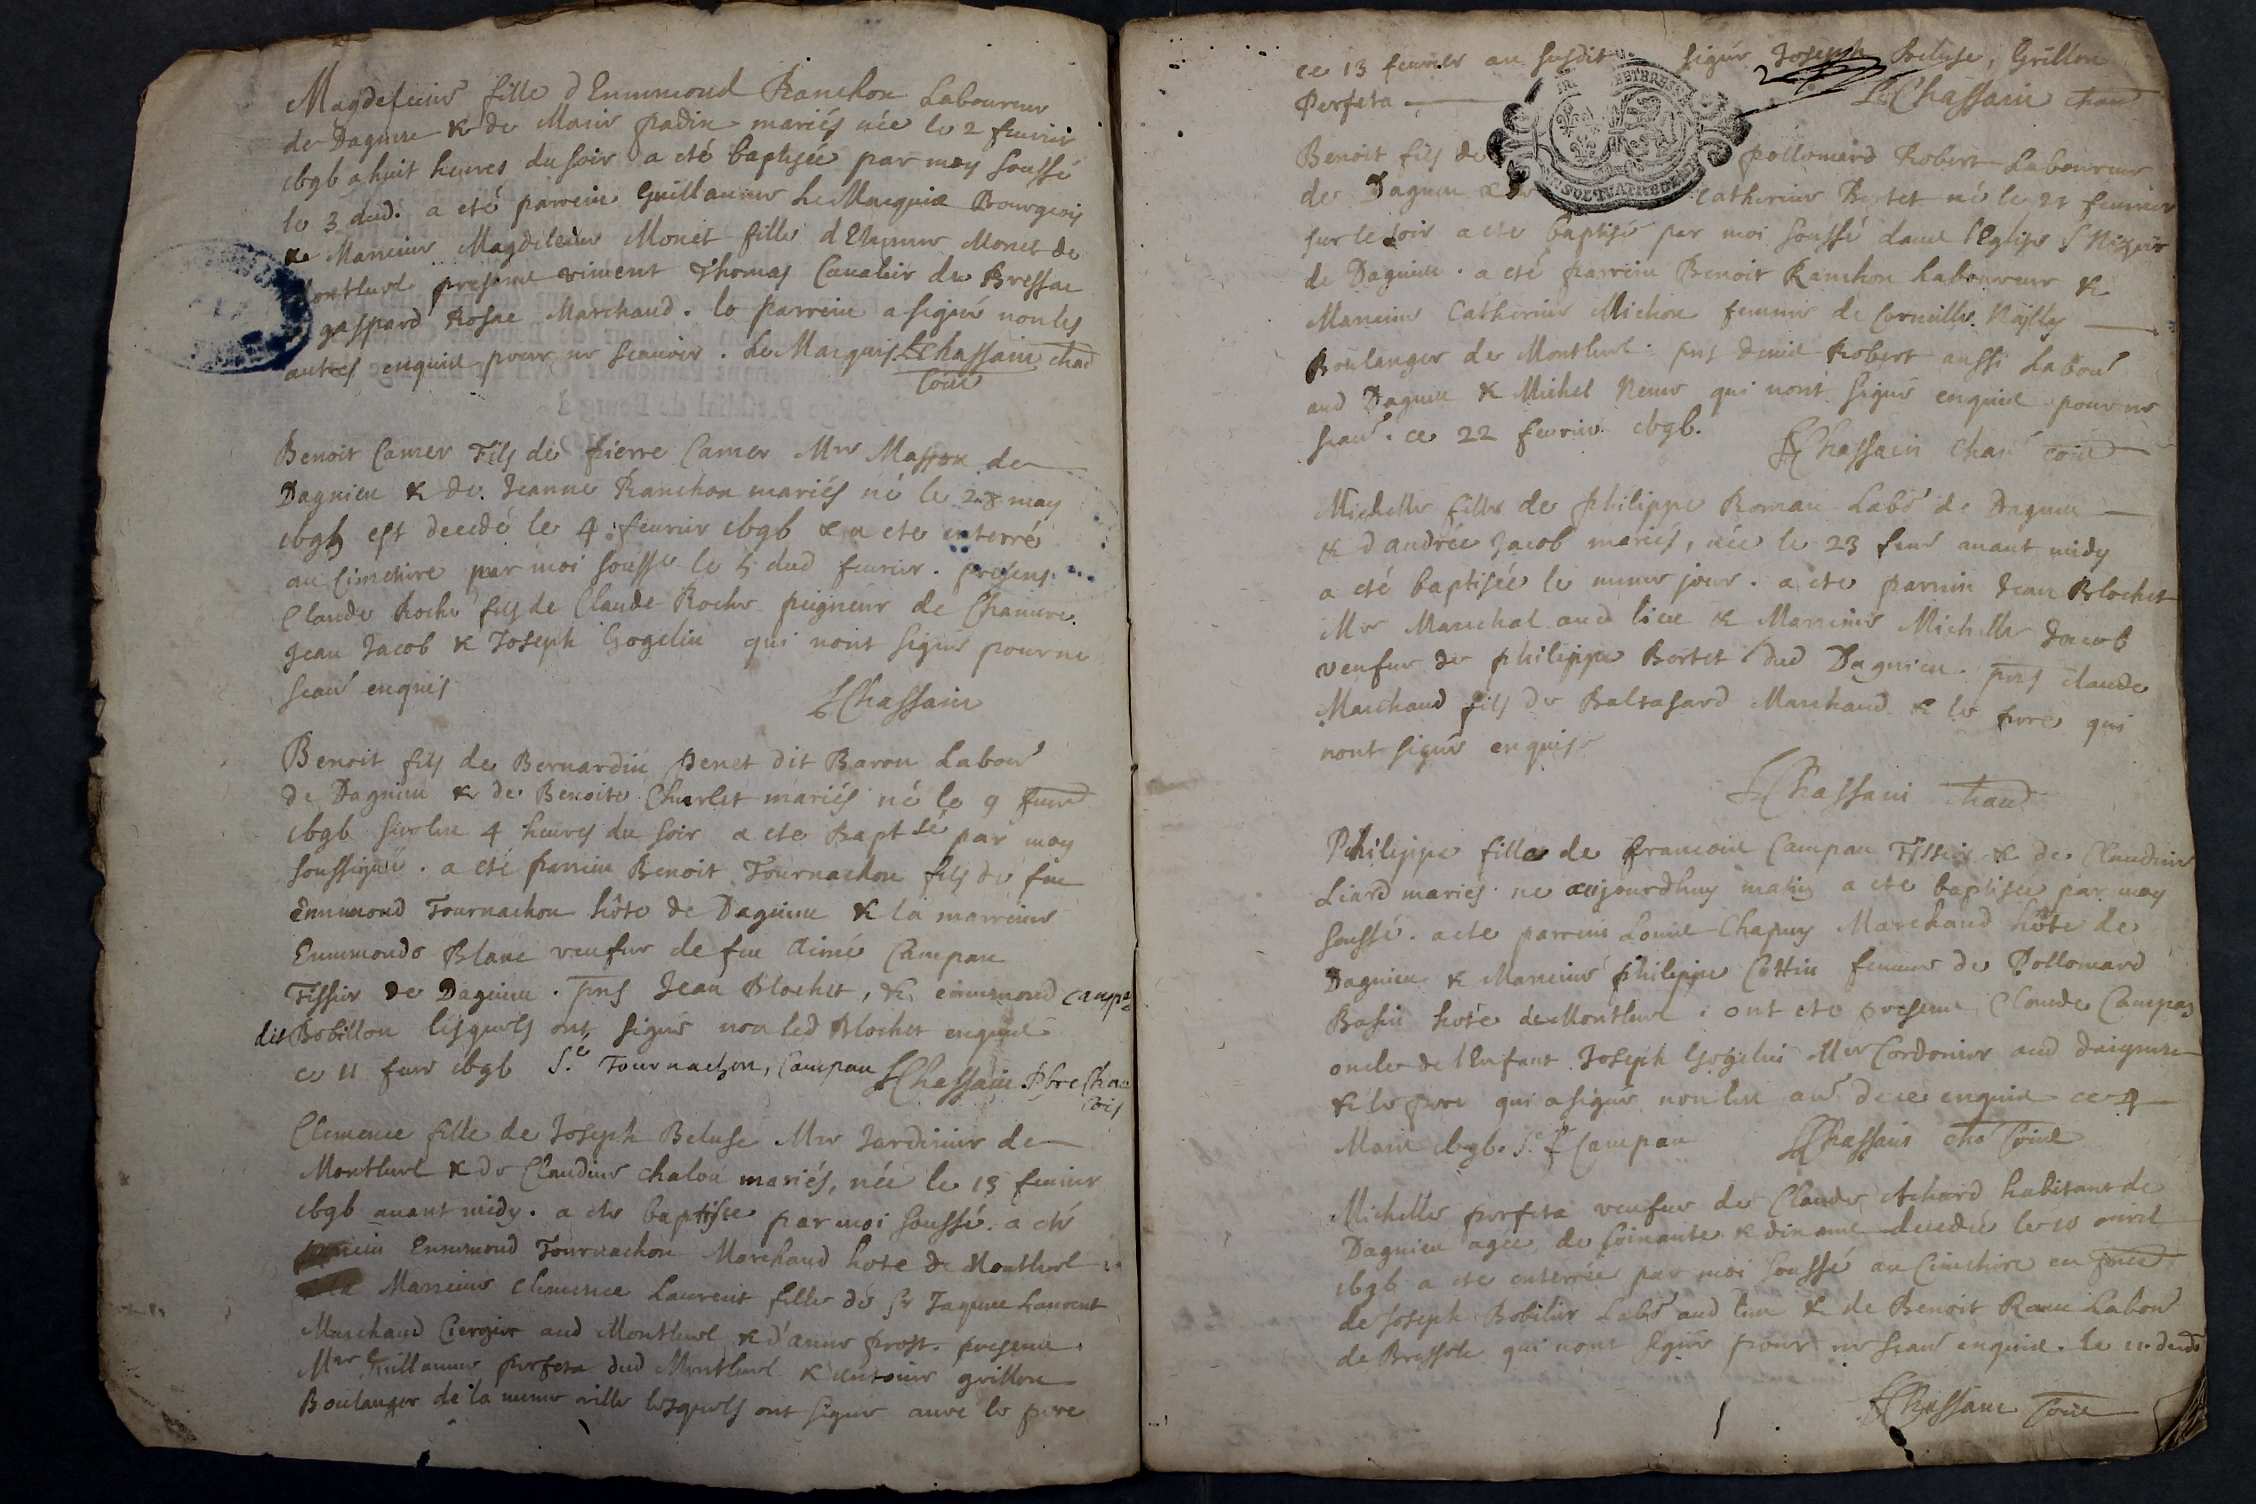 Magdeleine fille d Ennemond Ranchon Laboureur
de Dagnieu & de Marie padin mariés née le 2 feurier
cbgb a huit heures du soir a eté baptisée par moy soussé
le 3 dud. a eté parrein Guillaume Le Marquis Bourgeois
& Marreine Magdeleine Monet fille d'Etienne Monet de
Montluel presens vincent Thomas Caualier de Bressac
gaspard Rosac Marchand. le parrein a signé non les
autres enquis pour ne scauoir. Le Marquis LeChassain chad
Coiié
Benoit Camer Fils de pierre Camer Mre Masson de
Dagnieu & de Jeanne Ranchon mariés né le 28 may
cbgb est decedé le 4 feurier cbgb & a ete enterré
au Cimetire par moi soussé le 5 dud feurier. presens
Claude Roche fils de Claude Roche peigneur de Chanure
Jean Jacob & Joseph Gogelin qui n'ont signé pour ne
scau enquis
LeChassain
Benoit fils de Bernardin Penet dit Baron Labou
de Dagnieu & de Benoite Charlet mariés né le 9 feure
cbgb sur les 4 heures du soir a ete Baptisé par moy
soussigné. a eté parrein Benoit Tournachon fils de feu
Ennemond Tournachon hôte de Dagnieu & la marreine
Ennemonde Blanc veufue de feu Aimé Campan
Tissier de Dagnieu. pns Jean Blochet, & ennemond Campan
dit Bobillon lesquels ont signé non led Blochet enquis
ce 11 feur cbgb S.é Tournachon, Campan LeChassain Pbre Cha
Coiś
Clemence fille de Joseph Beluse Mre Jardinier de
Montluel & de Claudine chalon mariés, née le 13 feurier
cbgb auant midy. a ete baptisée par moi soussé. a eté
parrein Ennemond Tournachon Marchand hote de Montluel
& la Marreine clemence Laurent fille de sr Jaques Laurent
Marchand Ciergier aud Montluel & d'anne prost. presens
Mre Guillaume perfeta dud Montluel & Antoine grillon
Boulanger de la meme ville lesquels ont signé auec le pere
ce 13 feurier an susdit signé Joseph Beluse, Grillon
Perfeta LeChassain chad
Benoit fils de pollomard Robert Laboureur
de Dagnieu & de Catherine Bertet né le 21 feurier
sur le soir a ete baptisé par moi soussé dans l'Eglise S Nizier
de Dagnieu. a eté parrein Benoit Ranchon Laboureur &
Marreine Catherine Michon femme de Corneille Nailly
Boulanger de Montluel. pns denis Robert aussi Labou
aud Dagnieu & Michel Neme qui n'ont signé enquis pour ne
scau. ce 22 feurier cbgb. LeChassain chad Coiié
Michelle fille de philippe Roman Labo de Dagnieu
& d'andrée Jacob mariés, née le 23 feur auant midy
a eté baptisée le meme jour. a ete parrein Jean Blochet
Mre Marechal aud lieu & Marreine Michelle Jacob
veufue de philippe Bertet dud Dagnieu. pns claude
Marchand fils de Baltasard Marchand & le pere qui
nont signé enquis
LeChassain chad
Philippe fille de francois Campan Tissier & de Claudine
Liard mariés ne aujourdhuy matin a ete baptisée par moy
soussé. a ete parrein Louis Chapuy Marchand hôte de
Dagnieu & Marreine philippe Cottin femme de Pollomard
Basin hote de Montluel. ont ete presens Claude Campan
oncle de l'Enfant Joseph Gogelin Mre Cordonier aud daignieu
& le pere qui a signé non les au de ce enquis ce 4
Mars cbgb. S.é f Campan LeChassain cha Coiié
Michelle perfeta veufue de Claude Achard habitant de
Dagnieu agée de soixante & dix ans decedée le 10 auril
cbgb a ete enterrée par moi soussé au Cimetire en pnce
de Joseph Bobilier Labo aud lieu & de Benoit Rane Labou
de Bressole qui n'ont signé pour ne scau enquis. le 11 dud
LeChassain Coiié